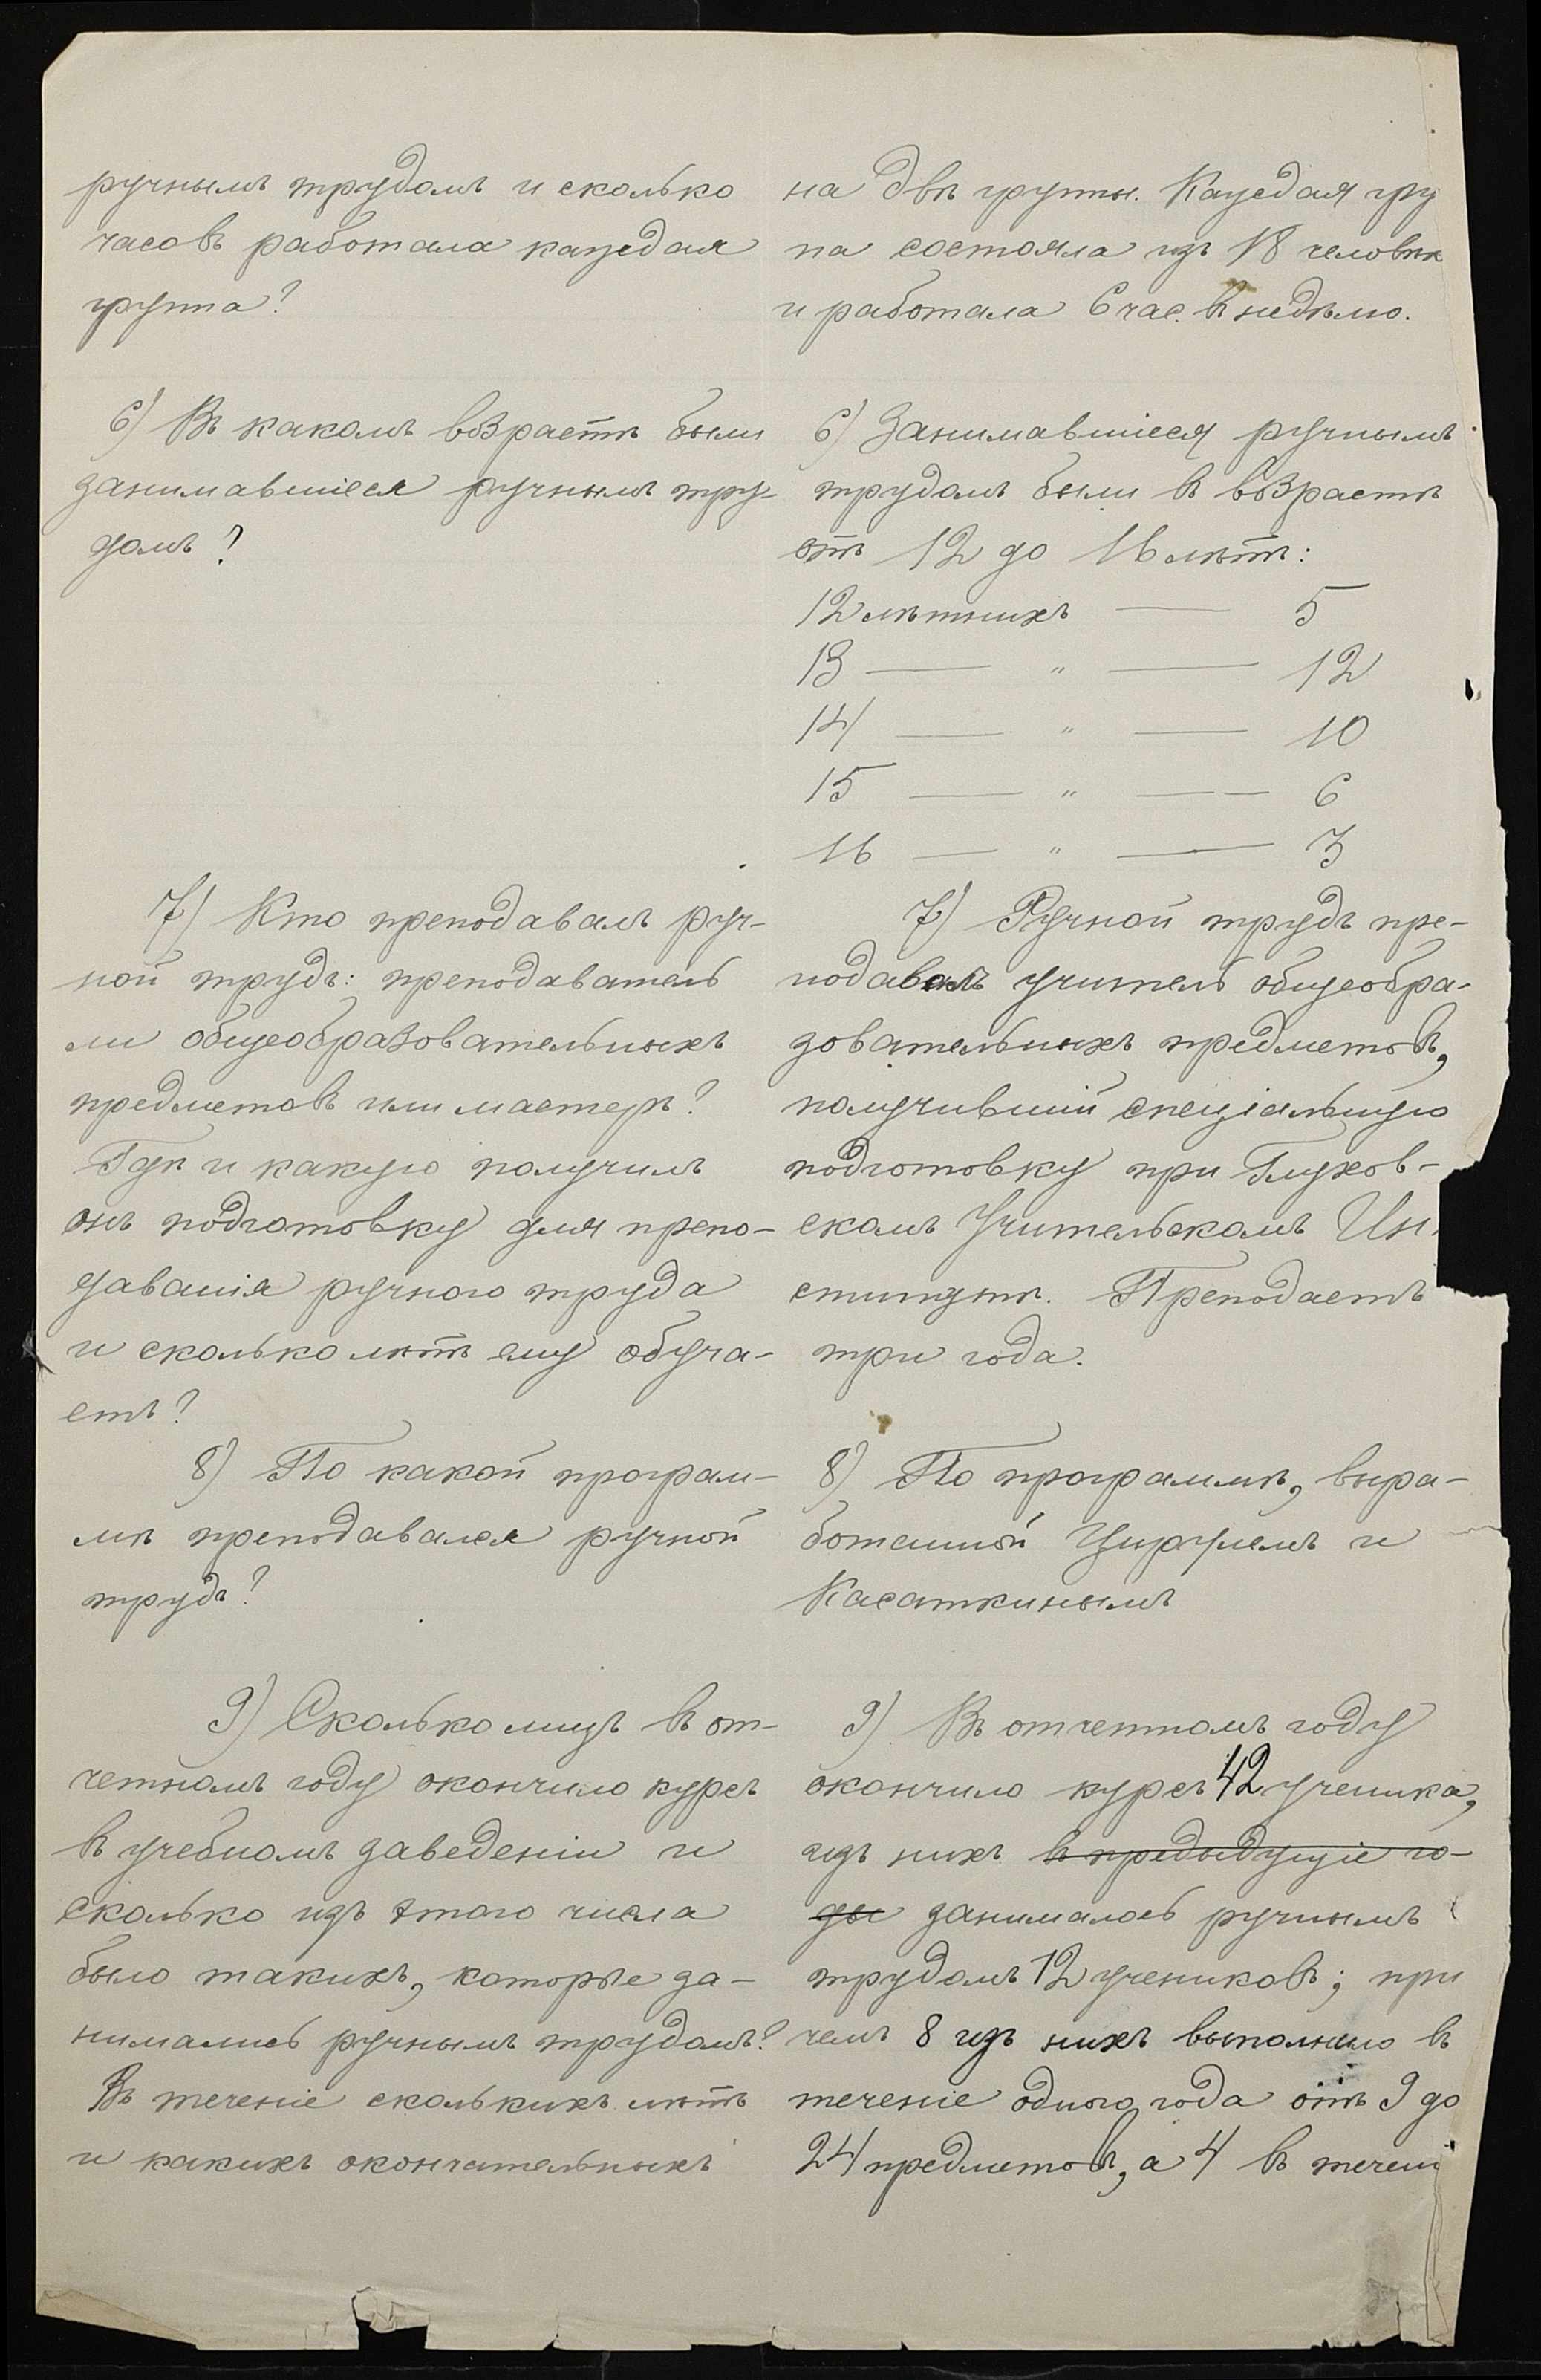 ручнымъ трудомъ и сколько
часовъ работала каждая
группа?
6) Въ какомъ возрастѣ были
занимавшіеся ручнымъ тру-
домъ?
7) Кто преподавалъ руч-
ной трудъ: преподаватель
ли общеобразовательныхъ
предметовъ или мастеръ?
Гдѣ и какую получилъ
онъ подготовку для препо-
даванія ручного труда
и сколько лѣтъ ему обуча-
етъ?
8) По какой програм-
мѣ преподавался ручной
трудъ?
9) Сколько лицъ въ от-
четномъ году окончило курсъ
въ учебномъ заведеніи и
сколько изъ этого числа
было такихъ, которые за-
нимались ручнымъ трудомъ?
Въ теченіе сколькихъ лѣтъ
и какихъ окончательныхъ
на двѣ групы. Каждая гру
па состояла изъ 18 человѣк
и работала 6 час. въ недѣлю.
6) Занимавшіеся ручнымъ
трудомъ были въ возрастѣ
отъ 12 до 16 лѣтъ:
12 лѣтнихъ — 5
13 — " — 12
14 — " — 10
15 — " — 6
16 — " — 3
7) Ручной трудъ пре-
подавалъ учитель общеобра-
зовательныхъ предметовъ,
получившій спеціальную
подготовку при Глухов-
скомъ Учительскомъ Ин-
ститутѣ. Преподаетъ
три года.
8) По программѣ, выра-
ботанной Цирулемъ и
Касаткинымъ
9) Въ отчетномъ году
окончило курсъ 42 ученика,
изъ нихъ въ предыдущіе го-
ды занималось ручнымъ
трудомъ 12 учениковъ; при
чемъ 8 изъ нихъ выполнило въ
теченіе одного года отъ 9 до
24 предметовъ, а 4 въ течені